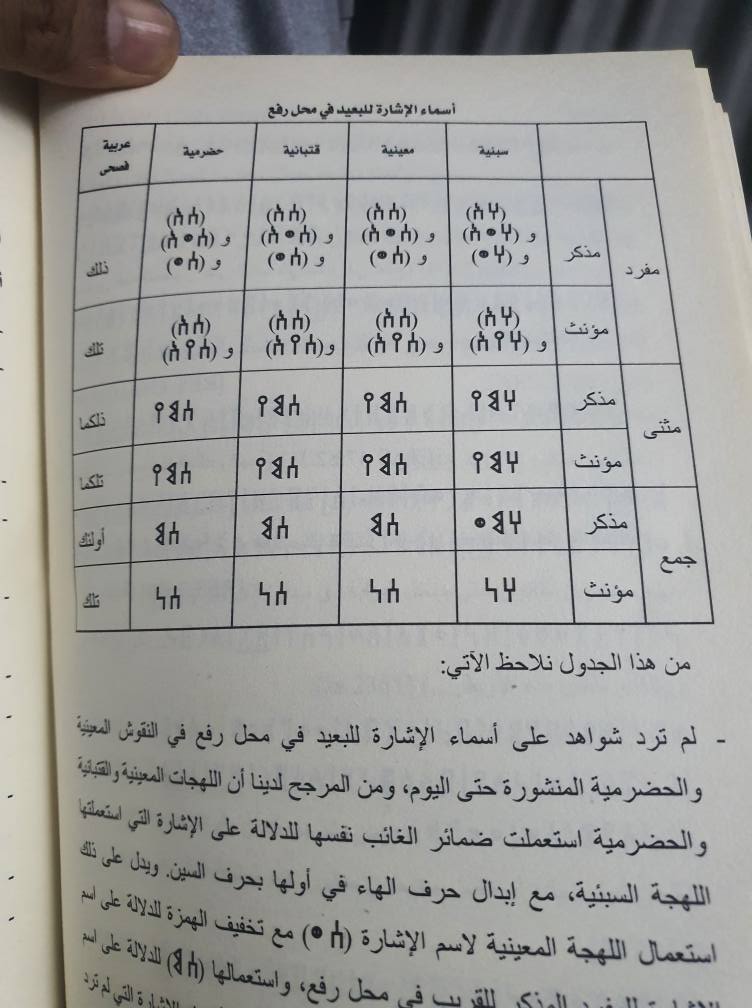 أسماء الإشارة للبعيد في محل رفع
سبئية معينية قتبانية حضرمية عربية فصحى
مفرد مذكر (𐩠𐩱) و (𐩠𐩥𐩱) و (𐩠𐩥) (𐩪𐩱) و (𐩪𐩥𐩱) و (𐩪𐩥) (𐩪𐩱) و (𐩪𐩥𐩱) و (𐩪𐩥) (𐩪𐩱) و (𐩪𐩥𐩱) و (𐩪𐩥) ذلك
مؤنث (𐩠𐩱) و (𐩠𐩺𐩱) (𐩪𐩱) و (𐩪𐩺𐩱) (𐩪𐩱) و (𐩪𐩺𐩱) (𐩪𐩱) و (𐩪𐩺𐩱) تلك
مثنى مذكر 𐩠𐩣𐩺 𐩪𐩣𐩺 𐩪𐩣𐩺 𐩪𐩣𐩺 ذلكما
مؤنث 𐩠𐩣𐩺 𐩪𐩣𐩺 𐩪𐩣𐩺 𐩪𐩣𐩺 تلكما
جمع مذكر 𐩠𐩣𐩥 𐩪𐩣 𐩪𐩣 𐩪𐩣 أولئك
مؤنث 𐩠𐩬 𐩪𐩬 𐩪𐩬 𐩪𐩬 تلك
من هذا الجدول نلاحظ الآتي:
- لم ترد شواهد على أسماء الإشارة للبعيد في محل رفع في النقوش المعينية
والحضرمية المنشورة حتى اليوم، ومن المرجح لدينا أن اللهجات المعينية والقتبانية
والحضرمية استعملت ضمائر الغائب نفسها للدلالة على الإشارة التي استعملتها
اللهجة السبئية، مع إبدال حرف الهاء في أولها بحرف السين. ويدل على ذلك
استعمال اللهجة المعينية لاسم الإشارة (𐩪𐩥) مع تخفيف الهمزة للدلالة على اسم
المذكر للقريب في محل رفع، واستعمالها (𐩪𐩣) للدلالة على اسم
الإشارة التي لم ترد